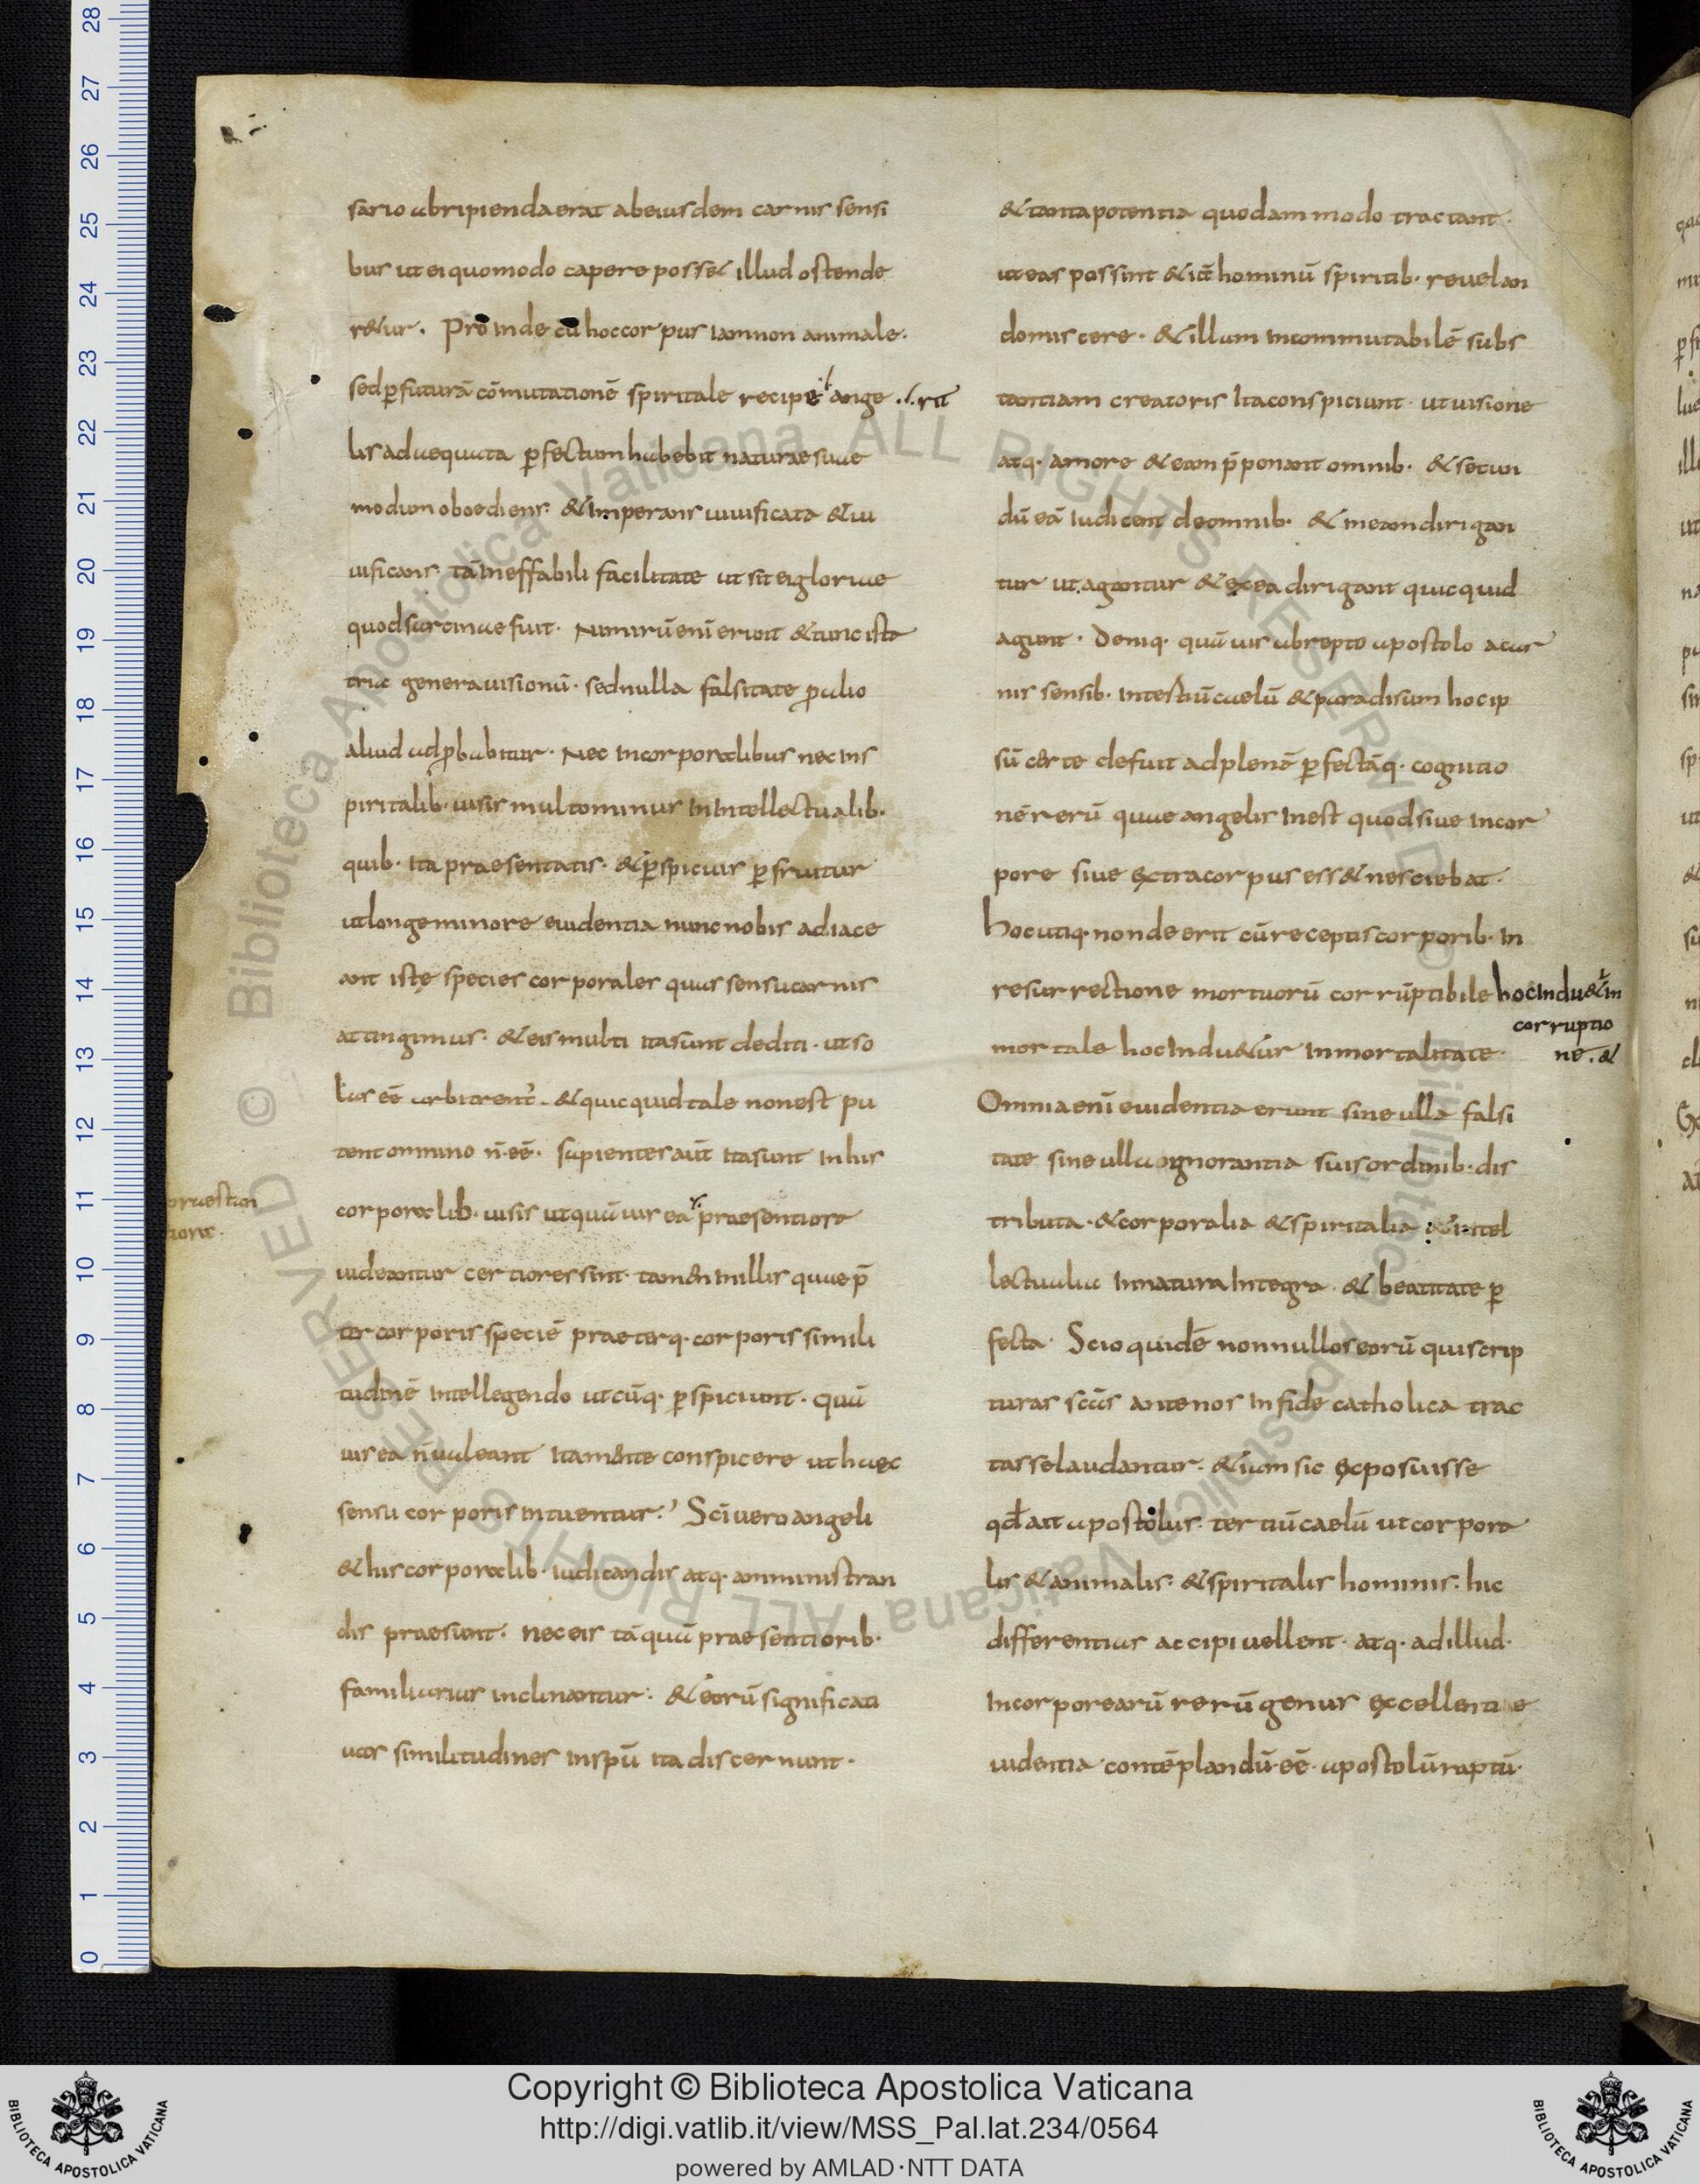 sario abripienda erat abeiusdem carnis sensi
bus ut ei quomodo capere posset illud ostende
r&ur. Proinde cū hoc corpus iam non animale.
sed ꝑ futurā cōmutationē spiritale recipe ange ./.rit
lis adaequata ꝑfectum habebit naturae suae
modum oboediens. & imperans uiuificata & ui
uificans. tā ineffabili facilitate ut sit ei gloriae
quod sarcinae fuit. Nimirū enī erunt & tunc ista
tria genera uisionū. sed nulla falsitate ꝓ alio
aliud adꝓbabitur. Nec in corporalibus nec ins
piritalib. uisis multo minus in intellectualib.
quib. ita praesentatis. & ꝑspicuis ꝑfruitur
ut longe minore euidentia nunc nobis adiace
ant istę species corporales quas sensu carnis
attingimus. & eis multi ita sunt dediti. ut so
las eē arbitrent. & quicquid tale non est pu
tent omnino n̄ eē. sapientes aūt ita sunt in his
corporalib. uisis ut quāuis ea praesentiora
uideantur certiores sint. tam& in illis quae p̄
ter corporis speciē praeterq. corporis simili
tudinē intellegendo utcūq. ꝑspiciunt. quā
uis ea n̄ ualeant ita m&nte conspicere ut haec
sensu corporis intuentur. Scī uero angeli
& his corporalib. iudicandis atq. amministran
dis praesunt. nec eis tāquā praesentiorib.
familiarius inclinantur. & eorū significati
uas similitudines in spū ita discernunt.
& tanta potentia quodammodo tractant.
ut eas possint & iā hominū spiritib. reuelan
do miscere. & illam incommutabilē subs
tantiam creatoris ita conspiciunt. ut uisione
atq. amore & eam p̄ponant omnib. & secun
dū eā iudicent de omnib. & in eam dirigan
tur ut agantur & ex ea dirigant quicquid
agunt. Deniq. quāuis abrepto apostolo a car
nis sensib. in tertiū caelū & paradisum hoc ip
sū certe defuit ad plenā ꝑfectāq. cognitio
nē rerū quae angelis inest quod siue in cor
pore siue extra corpus ess& nesciebat.
Hoc utiq. non deerit cū receptis corporib. in
resurrectione mortuorū corrūptibile hoc indu&in
corruptio
ne. &
mortale hoc indu&ur inmortalitate.
Omnia enī euidentia erunt sine ulla falsi
tate sine ulla ignorantia suis ordinib. dis
tributa. & corporalia & spiritalia & intel
lectualia in natura integra. & beatitate ꝑ
fecta. Scio quidē nonnullos eorū qui scrip
turas scās antenos in fide catholica trac
tasse laudantur. & iam sic exposuisse
qđ ait apostolus. tertiū caelū ut corpora
lis & animalis. & spiritalis hominis. hic
differentias accipi uellent. atq. ad illud.
incorporearū rerū genus excellenti e
uidentia contēplandū eē. apostolū raptū.